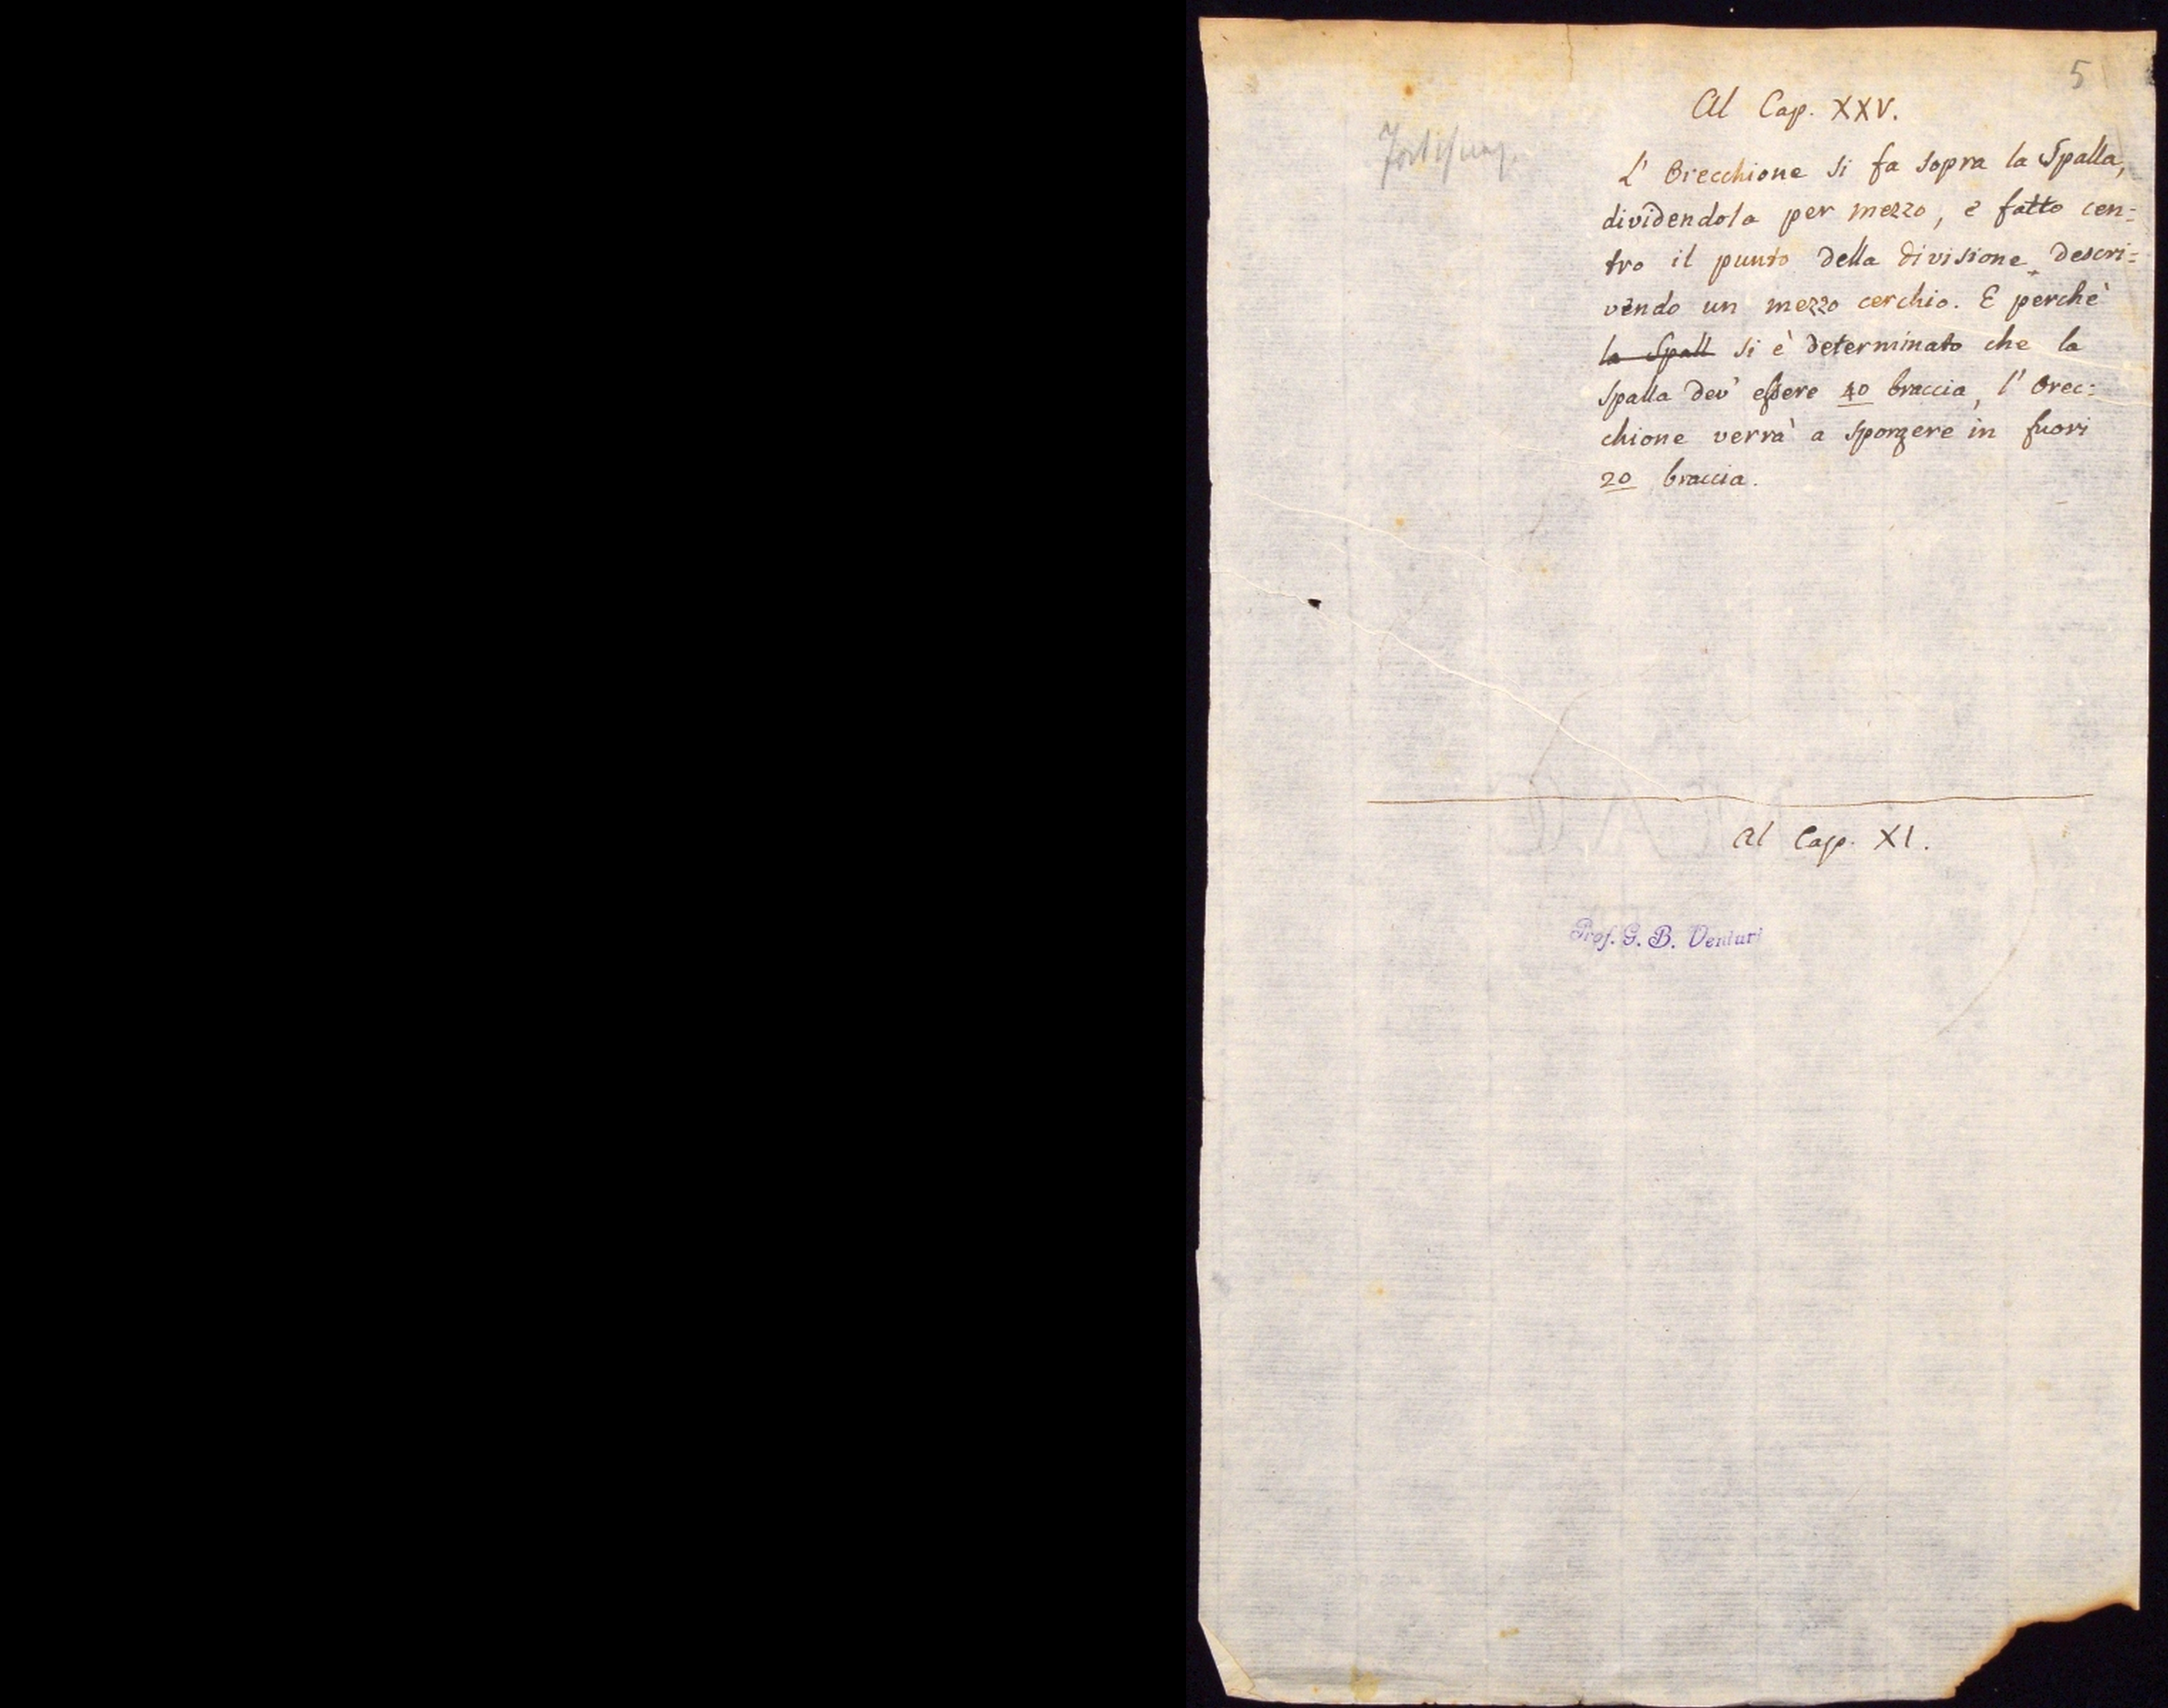 5
Al Cap. XXV.
L' Orecchione si fa sopra la Spalla,
dividendola per mezzo, e fatto cen=
tro il punto della divisione descri=
vendo un mezzo cerchio. E perchè
la Spall si è determinato che la
Spalla dev' essere 40 braccia, l' Orec=
chione verrà a sporgere in fuori
20 braccia.
Al Cap. XI.
Prof. G. B. Venturi